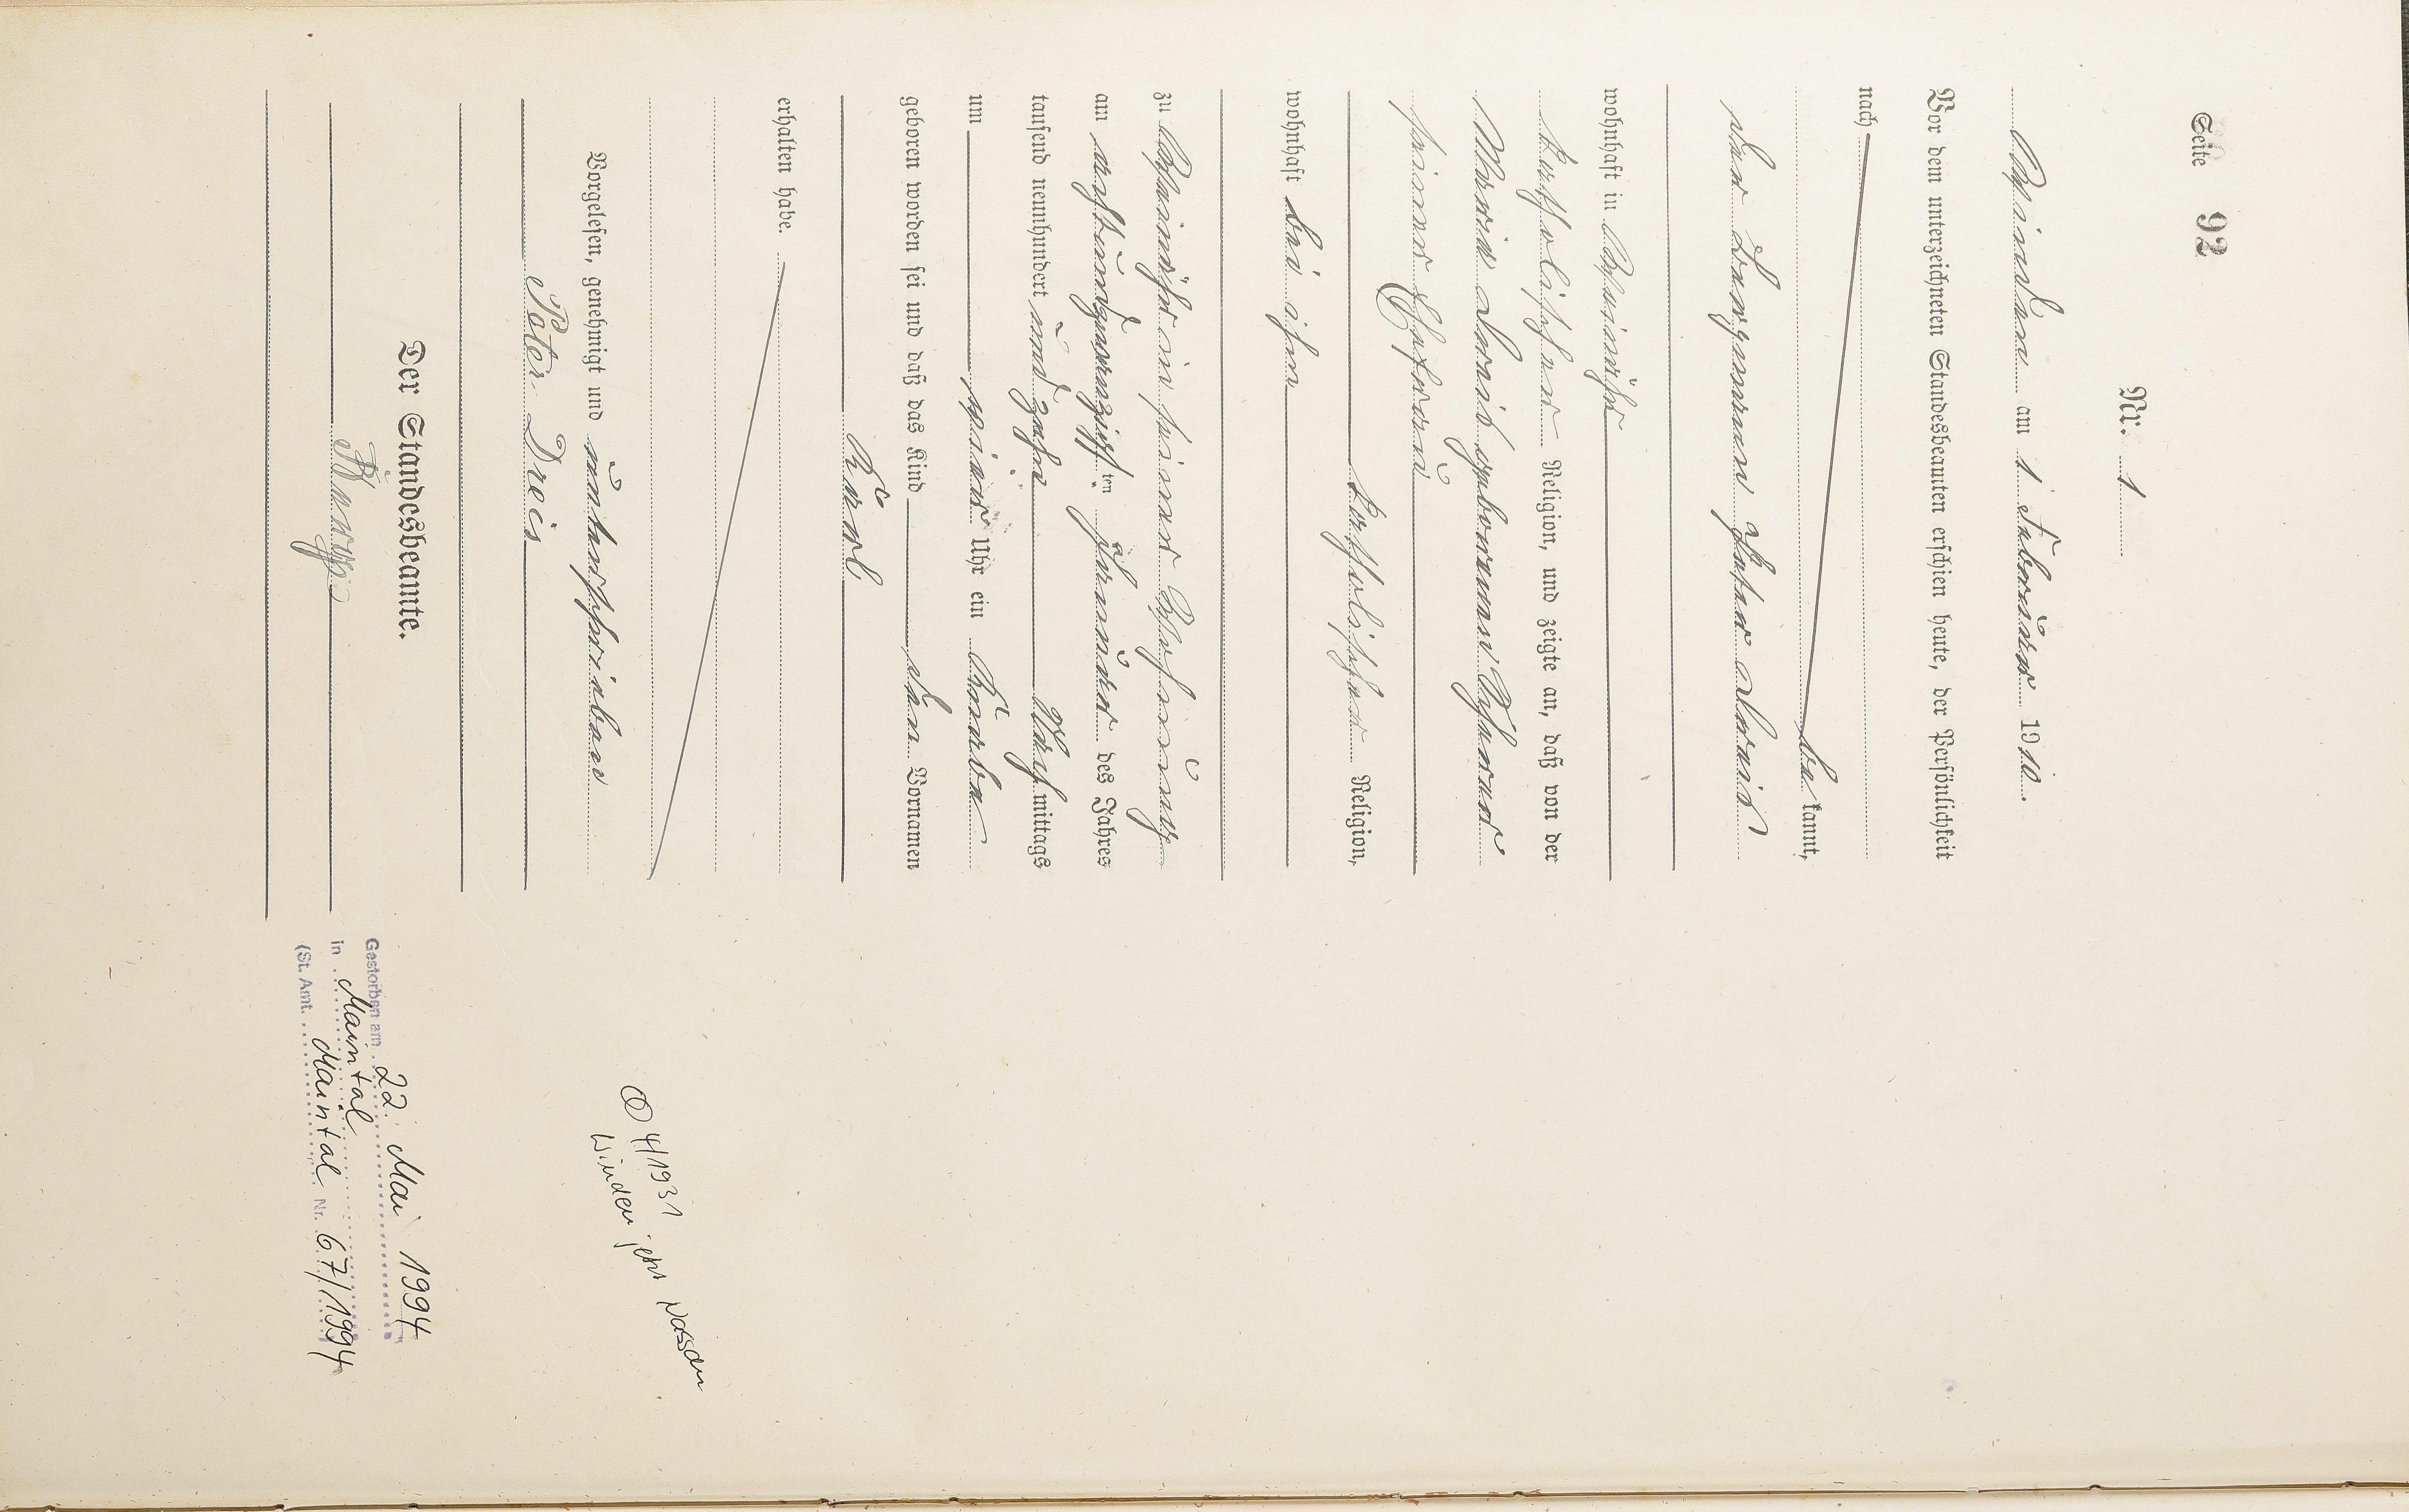 Seite 92
Nr. 1
Winden am 1 Februar 1910.
Vor dem unterzeichneten Standesbeamten erschien heute, der Persönlichkeit
nach
be kannt,
der Bergmann Peter Dreis
wohnhaft in Weinähr
katholischer Religion, und zeigte an, daß von der
Maria Dreis geborenen
seiner Ehefrau
katholischer Religion,
wohnhaft bei ihm
zu Weinähr in seiner Wohnung
am achtundzwanzigsten Januar des Jahres
tausend neunhundert und zehn Nachmittags
um vier Uhr ein Knabe
geboren worden sei und daß das Kind den Vornamen
Karl
erhalten habe.
Vorgelesen, genehmigt und unterschrieben
Peter Dreis
Der Standesbeamte.
4/1931
Winden jetzt Nassau
Gestorben am 22. Mai 1994
in Maintal
(St. Amt. Maintal Nr. 67/1994